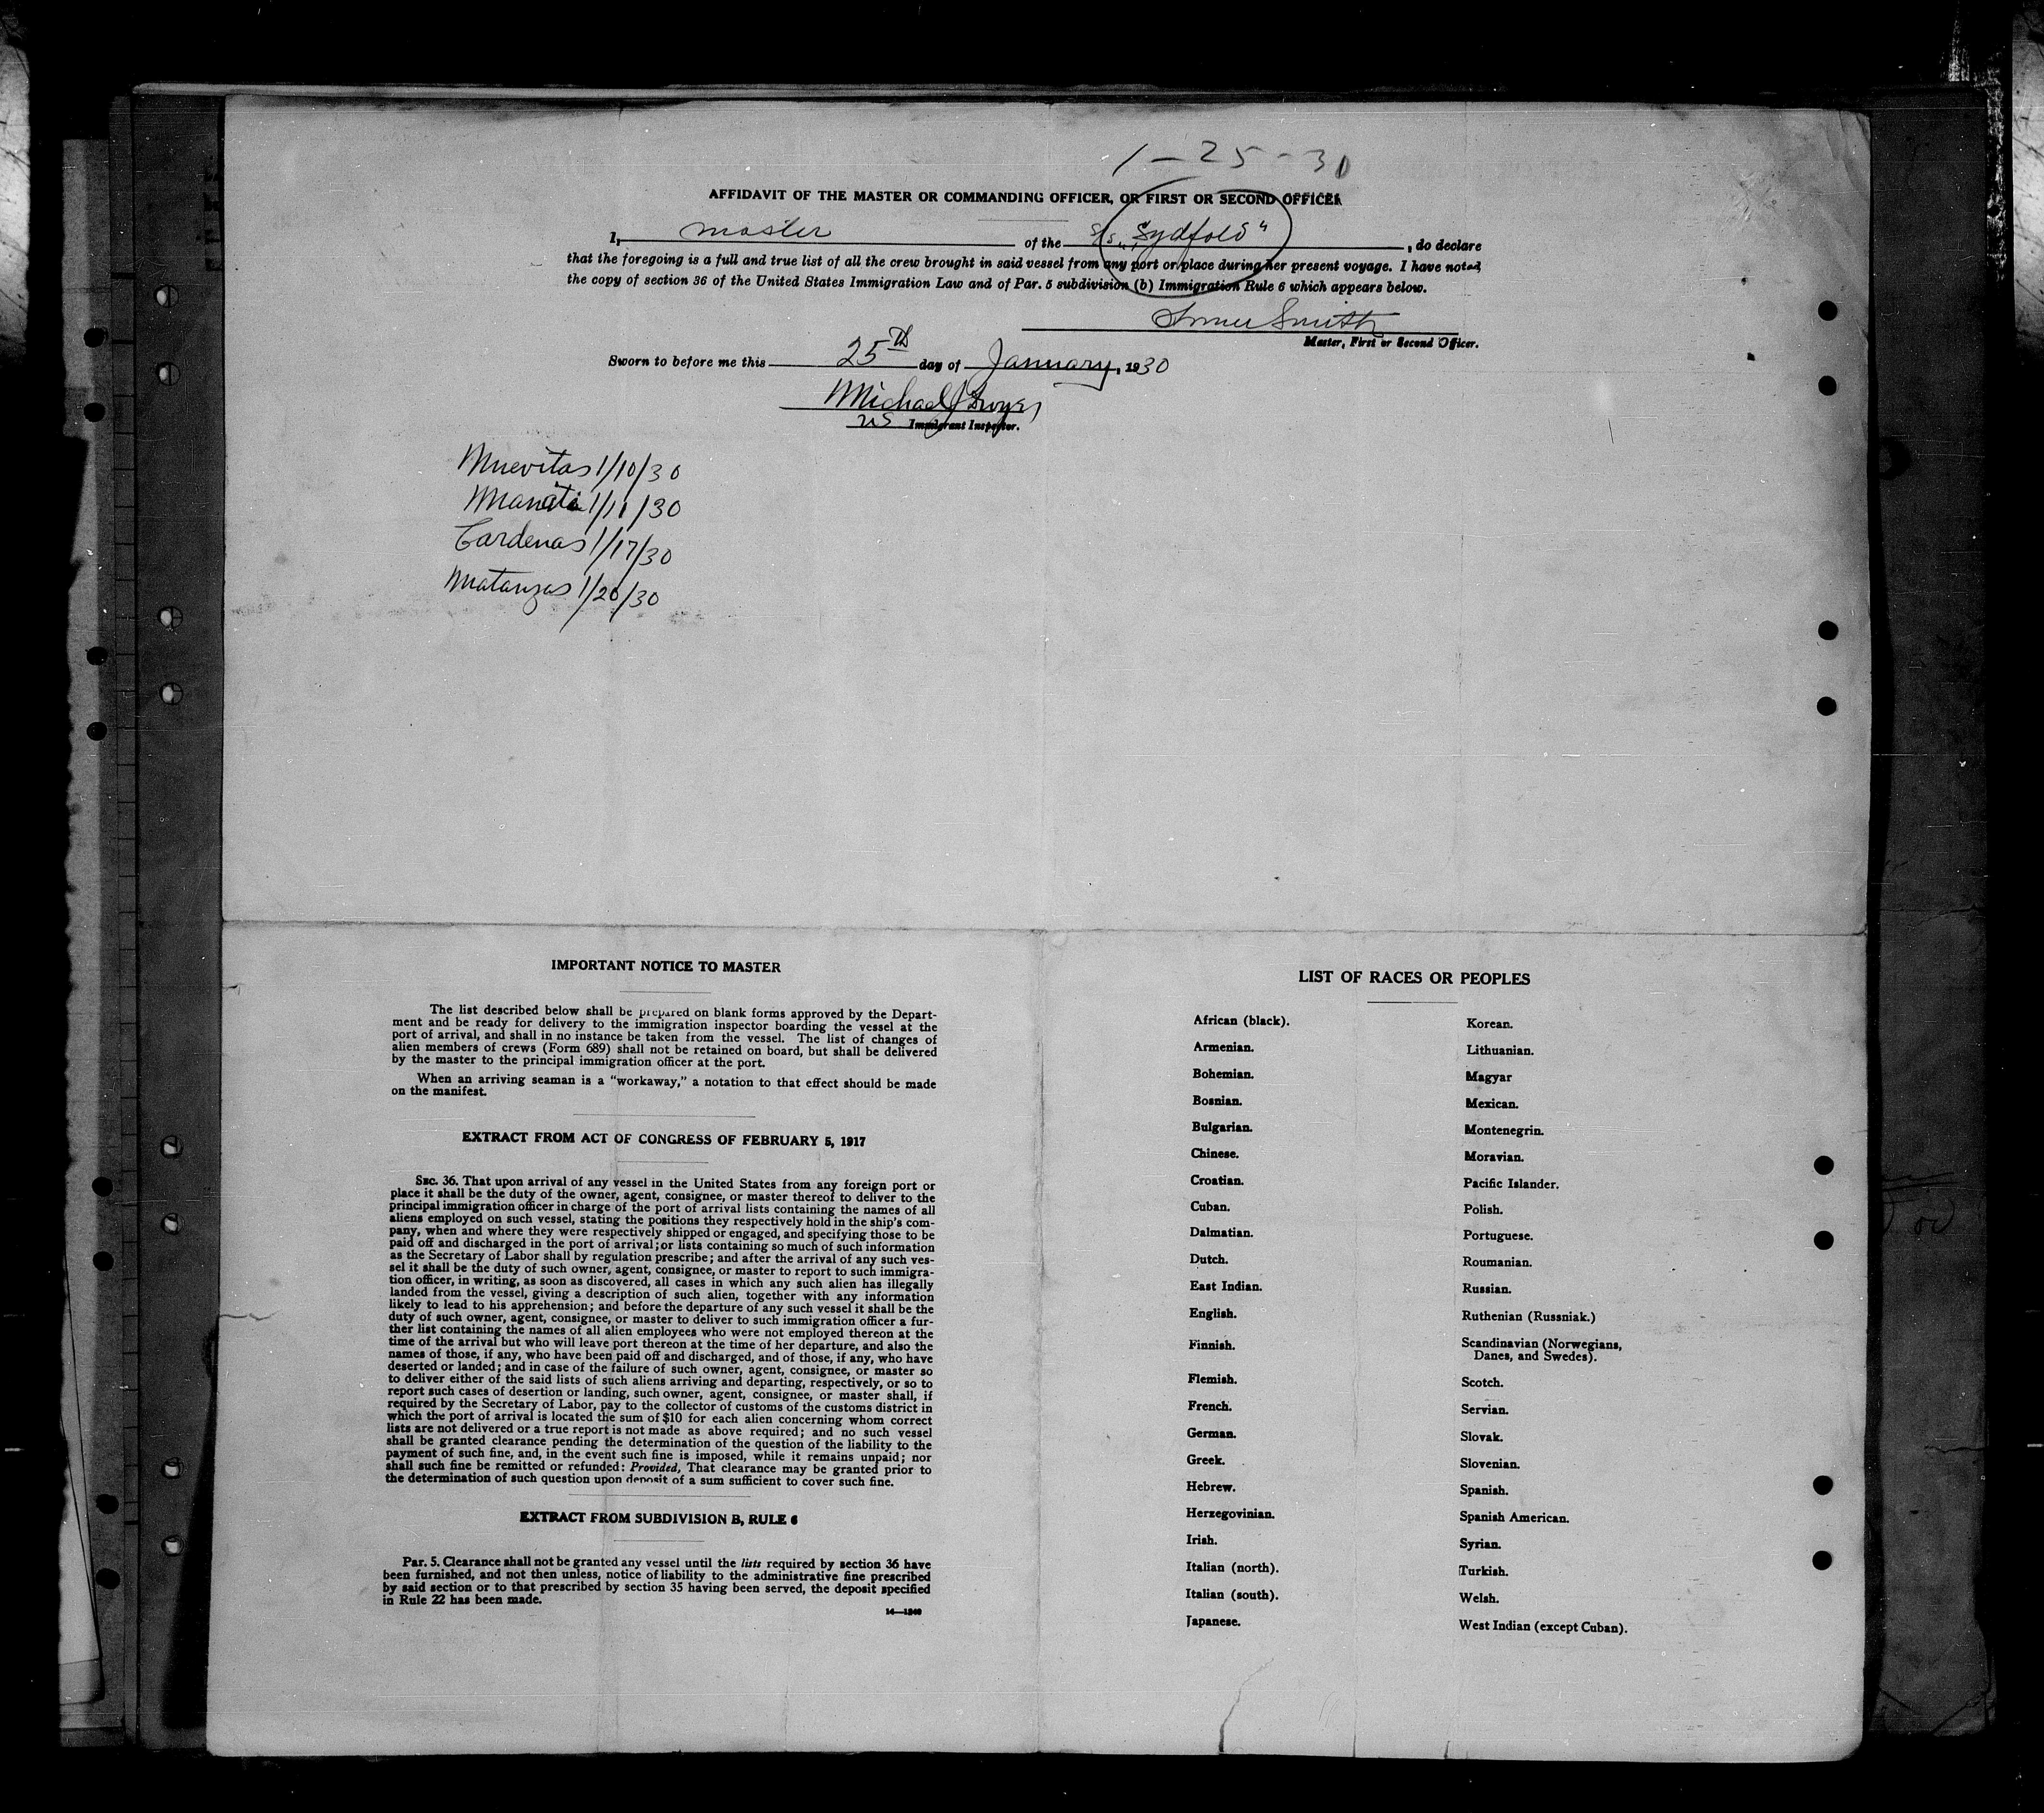 1-25-30
AFFIDAVIT OF THE MASTER OR COMMANDING OFFICER, OR FIRST OR SECOND OFFICER
I, master of the S/S "Sydfold", do declare
that the foregoing is a full and true list of all the crew brought in said vessel from any port or place during her present voyage. I have noted
the copy of section 36 of the United States Immigration Law and of Par. 5 subdivision (b) Immigration Rule 6 which appears below.
Smith
Master, First or Second Officer.
Sworn to before me this 25th day of January, 1930
Michael Dwyer
US Immigrant Inspector.
Nuevitas 1/10/30
Manati 1/11/30
Cardenas 1/17/30
Matanzas 1/20/30
IMPORTANT NOTICE TO MASTER
The list described below shall be prepared on blank forms approved by the Depart-
ment and be ready for delivery to the immigration inspector boarding the vessel at the
port of arrival, and shall in no instance be taken from the vessel. The list of changes of
alien members of crews (Form 689) shall not be retained on board, but shall be delivered
by the master to the principal immigration officer at the port.
When an arriving seaman is a "workaway," a notation to that effect should be made
on the manifest.
EXTRACT FROM ACT OF CONGRESS OF FEBRUARY 5, 1917
SEC. 36. That upon arrival of any vessel in the United States from any foreign port or
place it shall be the duty of the owner, agent, consignee, or master thereof to deliver to the
principal immigration officer in charge of the port of arrival lists containing the names of all
aliens employed on such vessel, stating the positions they respectively hold in the ship's com-
pany, when and where they were respectively shipped or engaged, and specifying those to be
paid off and discharged in the port of arrival; or lists containing so much of such information
as the Secretary of Labor shall by regulation prescribe; and after the arrival of any such ves-
sel it shall be the duty of such owner, agent, consignee, or master to report to such immigra-
tion officer, in writing, as soon as discovered, all cases in which any such alien has illegally
landed from the vessel, giving a description of such alien, together with any information
likely to lead to his apprehension; and before the departure of any such vessel it shall be the
duty of such owner, agent, consignee, or master to deliver to such immigration officer a fur-
ther list containing the names of all alien employees who were not employed thereon at the
time of the arrival but who will leave port thereon at the time of her departure, and also the
names of those, if any, who have been paid off and discharged, and of those, if any, who have
deserted or landed; and in case of the failure of such owner, agent, consignee, or master so
to deliver either of the said lists of such aliens arriving and departing, respectively, or so to
report such cases of desertion or landing, such owner, agent, consignee, or master shall, if
required by the Secretary of Labor, pay to the collector of customs of the customs district in
which the port of arrival is located the sum of $10 for each alien concerning whom correct
lists are not delivered or a true report is not made as above required; and no such vessel
shall be granted clearance pending the determination of the question of the liability to the
payment of such fine, and, in the event such fine is imposed, while it remains unpaid; nor
shall such fine be remitted or refunded: Provided, That clearance may be granted prior to
the determination of such question upon deposit of a sum sufficient to cover such fine.
EXTRACT FROM SUBDIVISION B, RULE 6
Par. 5. Clearance shall not be granted any vessel until the lists required by section 36 have
been furnished, and not then unless, notice of liability to the administrative fine prescribed
by said section or to that prescribed by section 35 having been served, the deposit specified
in Rule 22 has been made.
14—1240
LIST OF RACES OR PEOPLES
African (black).
Armenian.
Bohemian.
Bosnian.
Bulgarian.
Chinese.
Croatian.
Cuban.
Dalmatian.
Dutch.
East Indian.
English.
Finnish.
Flemish.
French.
German.
Greek.
Hebrew.
Herzegovinian.
Irish.
Italian (north).
Italian (south).
Japanese.
Korean.
Lithuanian.
Magyar
Mexican.
Montenegrin.
Moravian.
Pacific Islander.
Polish.
Portuguese.
Roumanian.
Russian.
Ruthenian (Russniak.)
Scandinavian (Norwegians,
Danes, and Swedes).
Scotch.
Servian.
Slovak.
Slovenian.
Spanish.
Spanish American.
Syrian.
Turkish.
Welsh.
West Indian (except Cuban).